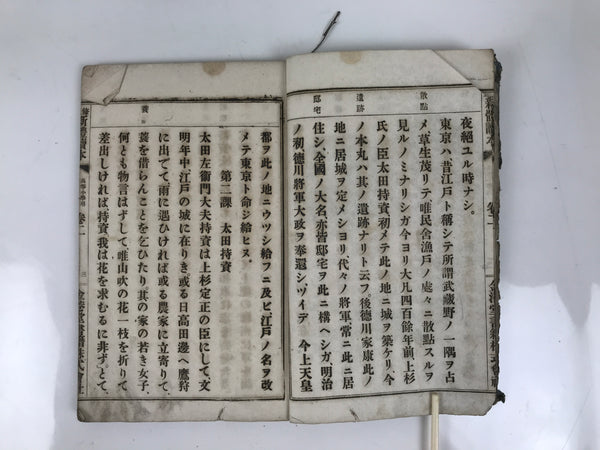 散點
遺跡
邸宅
夜絕ユル時ナシ。
東京ハ、昔江戸ト稱シテ所謂武藏野ノ一隅ヲ占
メ草生茂リテ唯民舍漁戸ノ處々ニ散點スルヲ
見ルノミナリシガ今ヨリ大凡四百餘年前、上杉
氏ノ臣太田持資初メテ此ノ地ニ城ヲ築ケリ、今
ノ本丸ハ其ノ遺跡ナリト云フ後德川家康此ノ
地ニ居城ヲ定メシヨリ、代々ノ將軍、常ニ此ニ居
住シ、全國ノ大名、亦皆邸宅ヲ此ニ構ヘシガ、明治
ノ初、德川將軍大政ヲ奉還シ、ツイデ 今上天皇
蓑
都ヲ此ノ地ニウツシ給フニ及ビ、江戸ノ名ヲ改
メテ東京ト命ジ給ヒス。
第二課 太田持資
太田左衞門大夫持資は上杉定正の臣にして、文
明年中、江戸の城に在りき或る日高田邊へ鷹狩
に出でて、雨に遇ひければ或る農家に立寄りて、
蓑を借らんことを乞ひたり其の家の若き女子、
何とも物言はずして唯山吹の花一枝を折りて
差出しければ持資我は花を求むるに非ずとて、
卷二
三